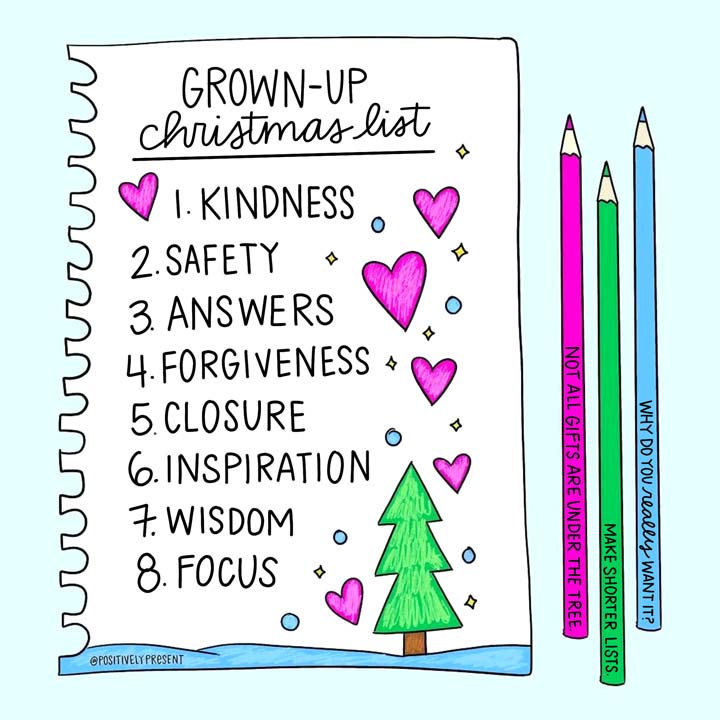 GROWN-UP
christmas list
1. KINDNESS
2. SAFETY
3. ANSWERS
4. FORGIVENESS
5. CLOSURE
6. INSPIRATION
7. WISDOM
8. FOCUS
@POSITIVELYPRESENT
NOT ALL GIFTS ARE UNDER THE TREE.
MAKE SHORTER LISTS.
WHY DO YOU really WANT IT?